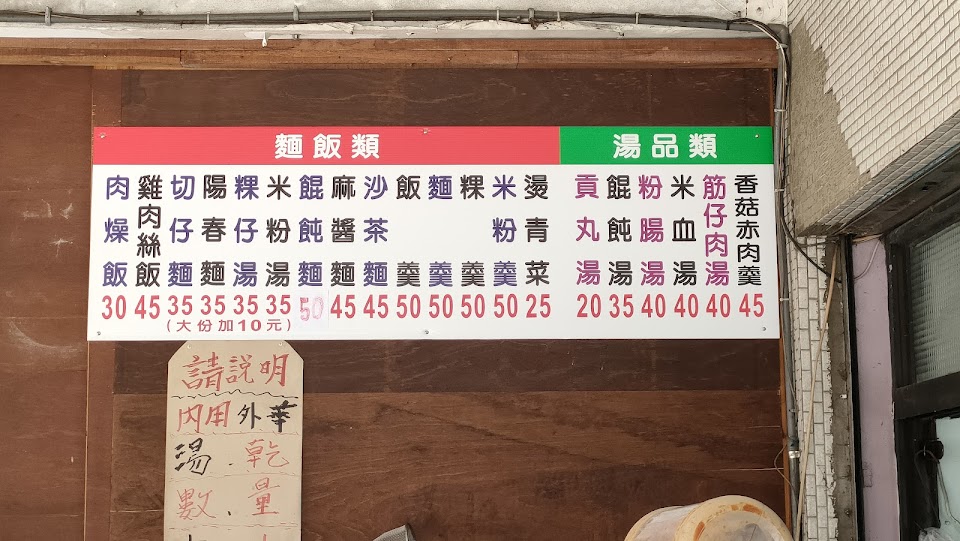 麵飯類
肉燥飯 30
雞肉絲飯 45
切仔麵 35
陽春麵 35
粿仔湯 35
米粉湯 35
餛飩麵 50
麻醬麵 45
沙茶麵 45
飯羹 50
麵羹 50
粿羹 50
米粉羹 50
燙青菜 25
(大份加10元)
湯品類
貢丸湯 20
餛飩湯 35
粉腸湯 40
米血湯 40
筋仔肉湯 40
香菇赤肉羹 45
請說明
內用外華
湯.乾
數.量